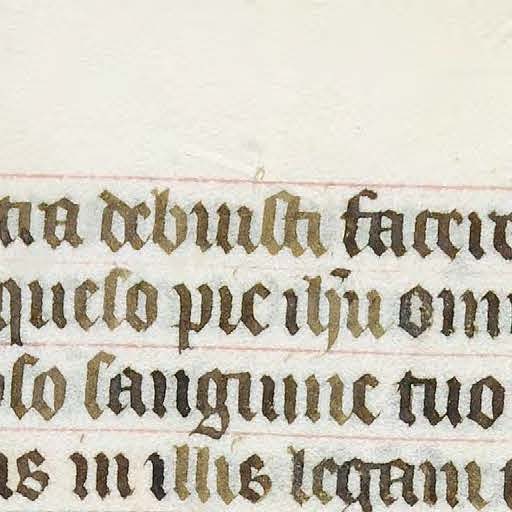 tia debuisti facere
queso pie ihu omn
so sanguine tuo
us in illis legam